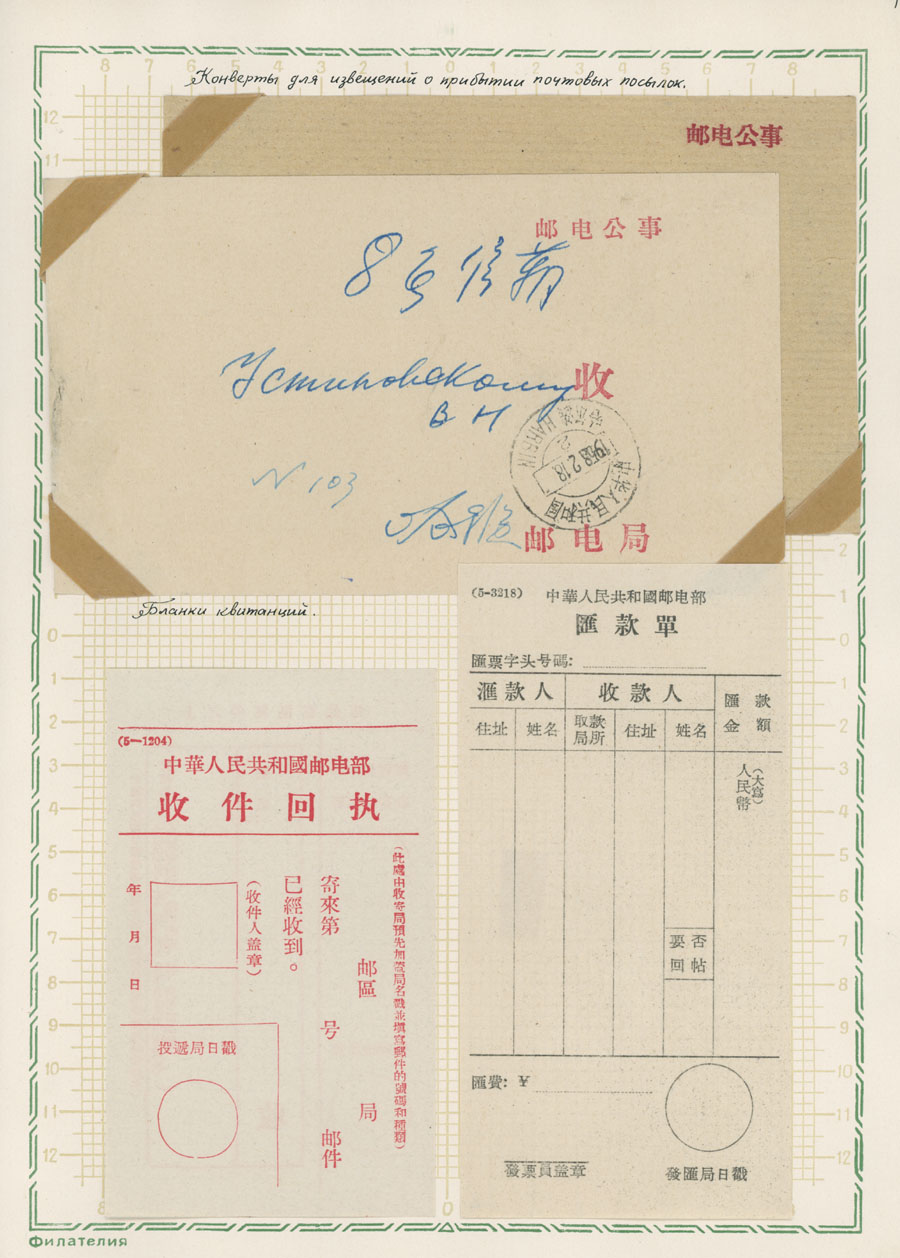 Конверты для извещений о прибытии почтовых посылок.
邮电公事
邮电公事
8号信箱
Устиновскому
收
В Н
哈尔滨 HARBIN
1958.2.18
2
中华人民共和国
N 103
邮电局
Бланки квитанций.
(5-3218) 中華人民共和國邮电部
匯款單
匯票字头号碼:
滙款人 收款人 匯款金額
住址 姓名 取款局所 住址 姓名
人民幣(大寫)
要否
回帖
匯費: ¥
發票員盖章 發匯局日戳
(5—1204)
中華人民共和國邮电部
收件回执
(此處由收寄局預先加盖局名戳並塡寫郵件的號碼和種類)
邮區 局
寄來第 号 邮件
已經收到。
(收件人盖章)
年 月 日
投遞局日戳
Филателия